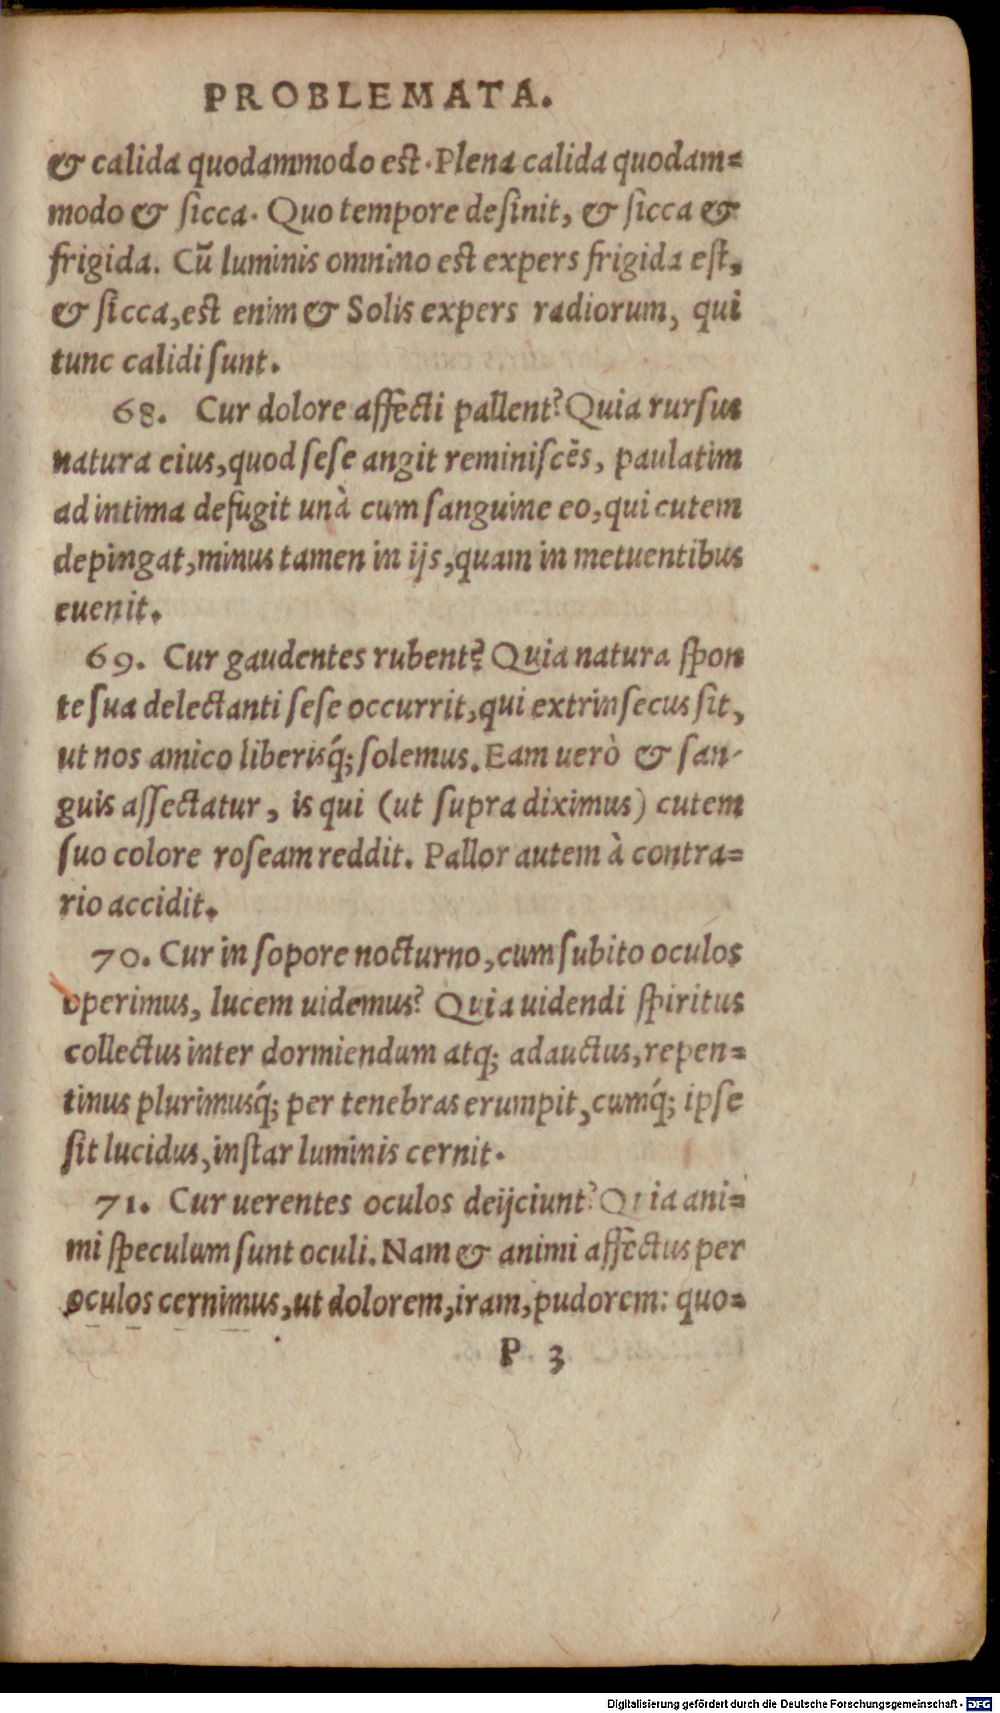 PROBLEMATA.
& calida quodammodo est. Plena calida quodam=
modo & sicca. Quo tempore desinit, & sicca &
frigida. Cũ luminis omnino est expers frigida est,
& sicca, est enim & Solis expers radiorum, qui
tunc calidi sunt.
68. Cur dolore affecti pallent? Quia rursus
natura eius, quod sese angit reminiscẽs, paulatim
ad intima defugit unà cum sanguine eo, qui cutem
depingat, minus tamen in ijs, quam in metuentibus
euenit.
69. Cur gaudentes rubent? Quia natura spon
te sua delectanti sese occurrit, qui extrinsecus sit,
ut nos amico liberisq́; solemus. Eam uerò & san-
guis assectatur, is qui (ut supra diximus) cutem
suo colore roseam reddit. Pallor autem à contra=
rio accidit.
70. Cur in sopore nocturno, cum subito oculos
operimus, lucem uidemus? Quia uidendi spiritus
collectus inter dormiendum atq; adauctus, repen=
tinus plurimusq́; per tenebras erumpit, cumq́; ipse
sit lucidus, instar luminis cernit.
71. Cur uerentes oculos deijciunt? Quia ani=
mi speculum sunt oculi. Nam & animi affectus per
oculos cernimus, ut dolorem, iram, pudorem: quo=
P 3
Digitalisierung gefördert durch die Deutsche Forschungsgemeinschaft - DFG